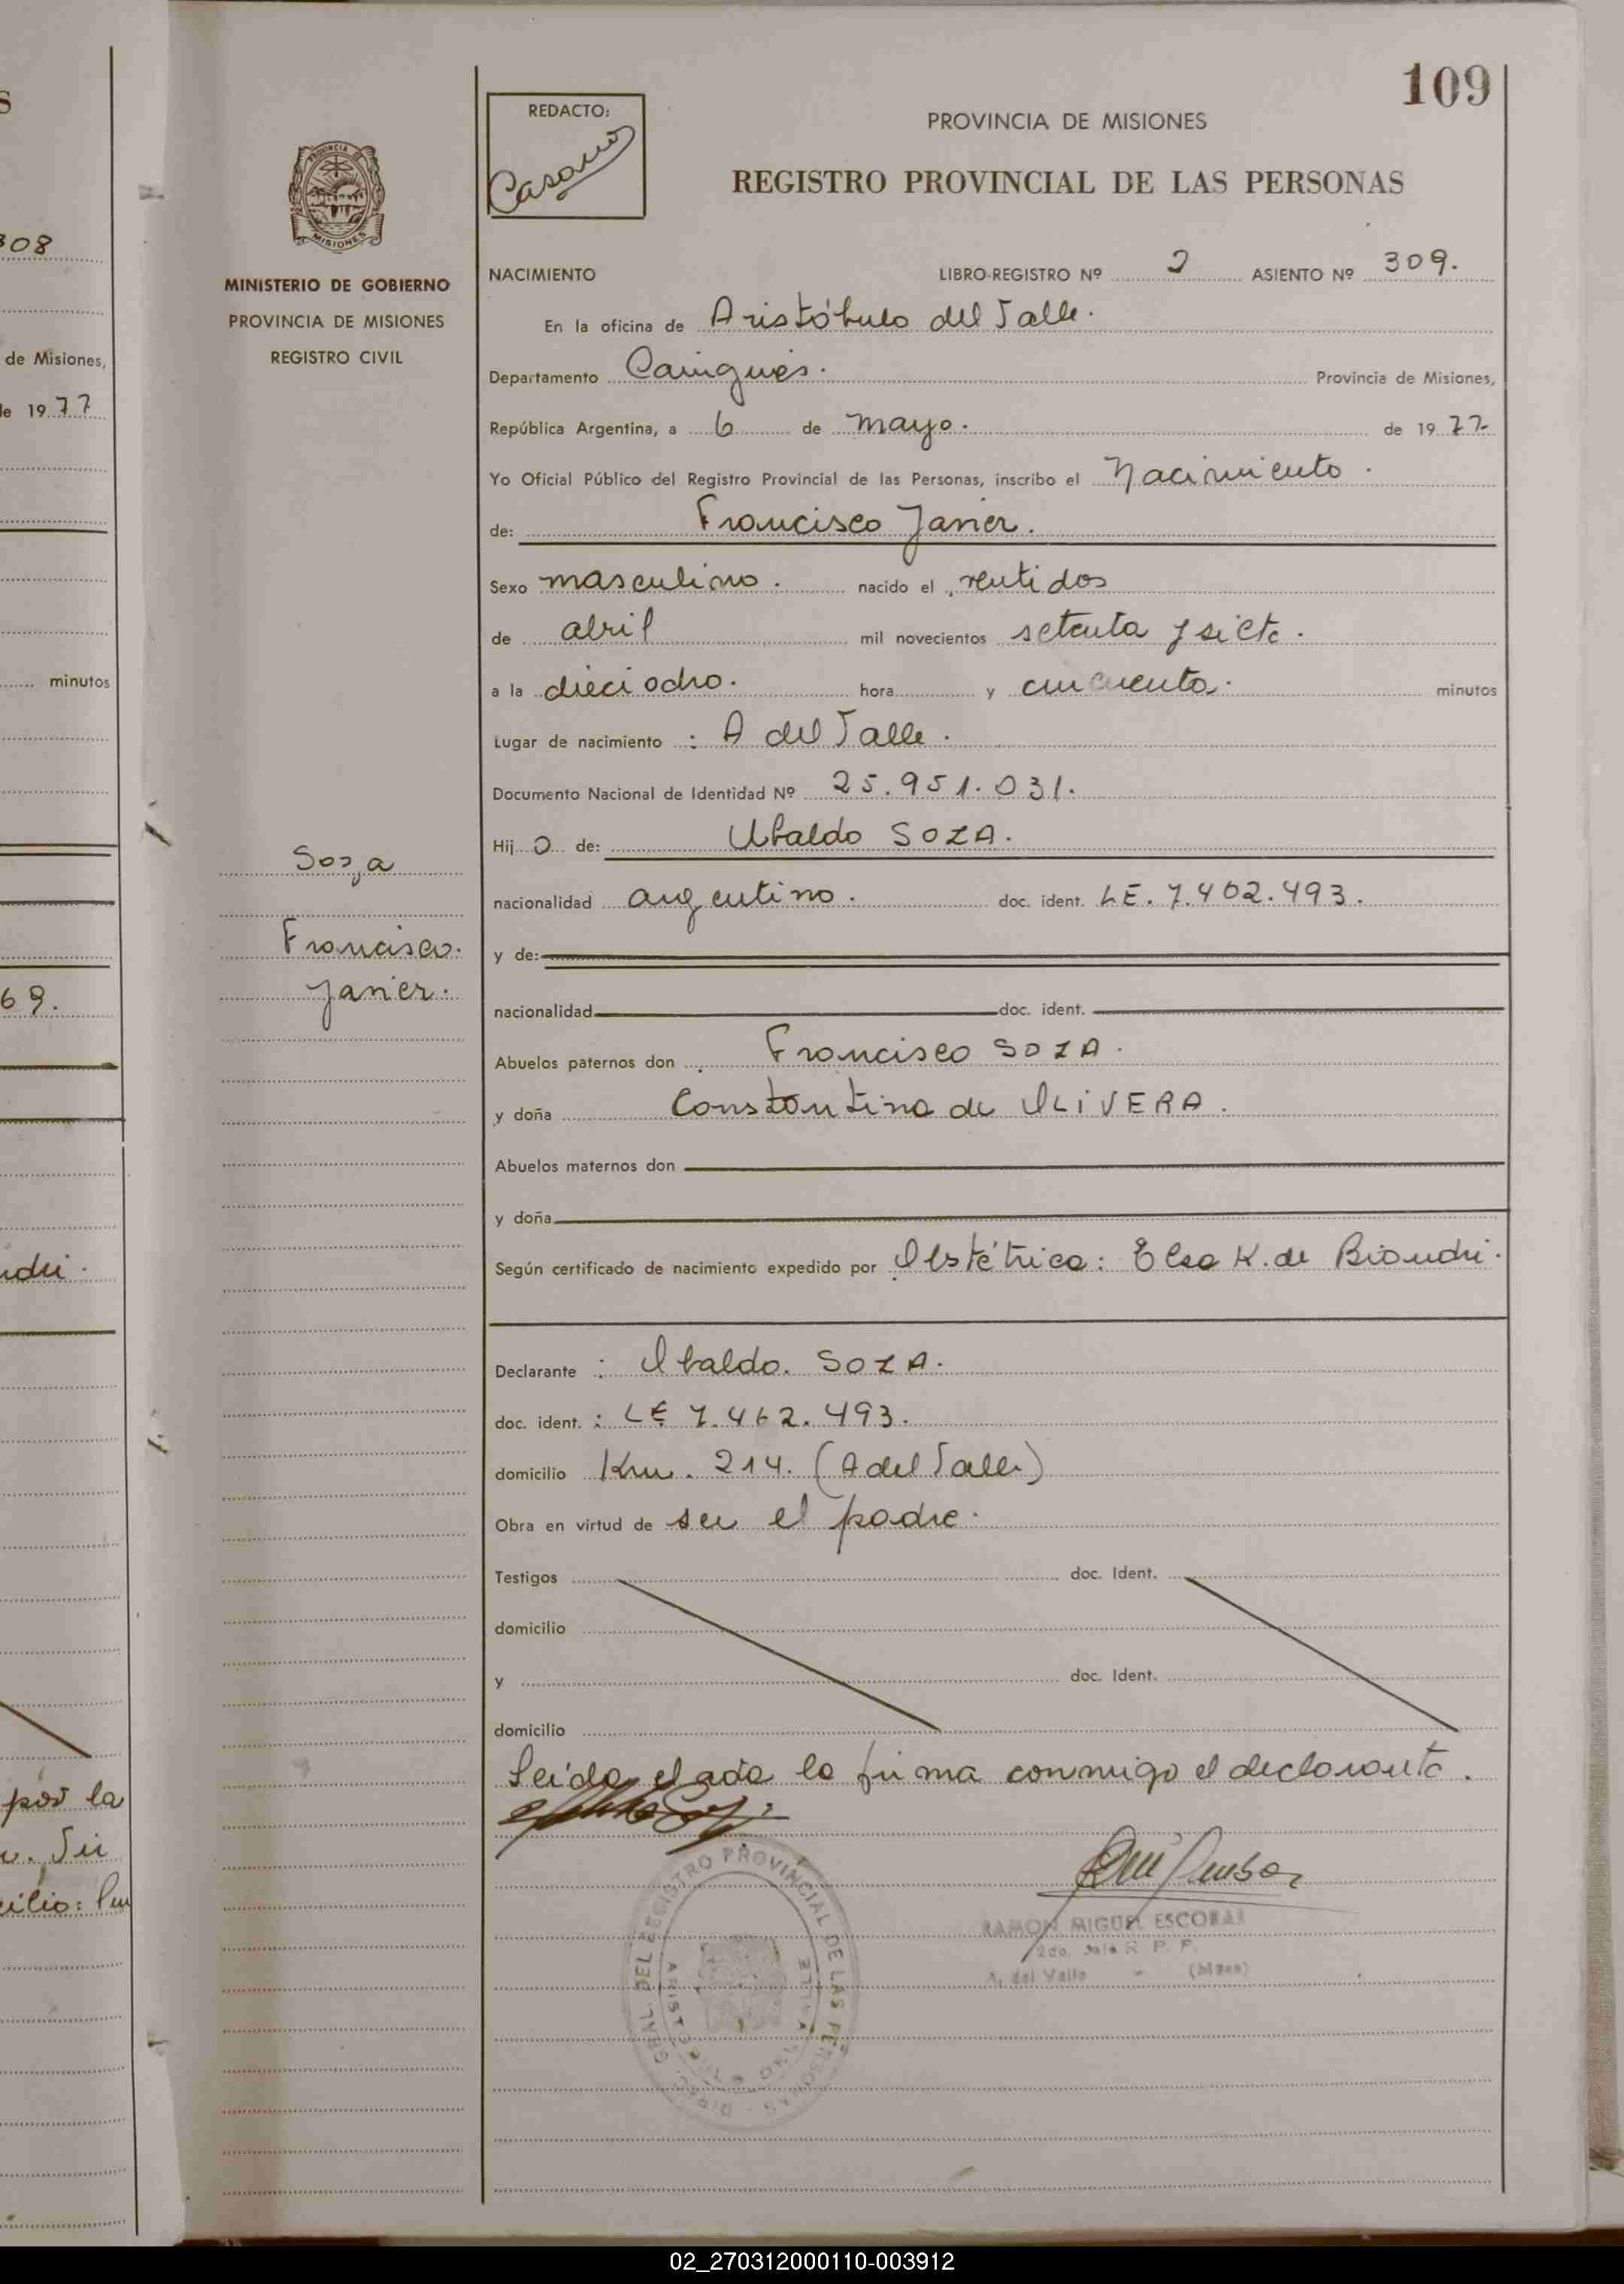 109
REDACTO:
Casano
PROVINCIA DE MISIONES
REGISTRO PROVINCIAL DE LAS PERSONAS
PROVINCIA DE
MISIONES
MINISTERIO DE GOBIERNO
PROVINCIA DE MISIONES
REGISTRO CIVIL
NACIMIENTO LIBRO-REGISTRO Nº 2 ASIENTO Nº 309.
En la oficina de Aristóbulo del Valle.
Departamento Cainguás. Provincia de Misiones,
República Argentina, a 6 de mayo. de 1977
Yo Oficial Público del Registro Provincial de las Personas, inscribo el Nacimiento.
de: Francisco Javier.
Sexo masculino. nacido el ventidos
de abril mil novecientos setenta y siete.
a la dieciocho. hora y cincuenta. minutos
Lugar de nacimiento : A del Valle.
Documento Nacional de Identidad Nº 25.951.031.
Hijo de: Ubaldo SOZA.
nacionalidad argentino. doc. ident. LE. 7.462.493.
y de:
nacionalidad doc. ident.
Abuelos paternos don Francisco SOZA.
y doña Constantina de OLIVERA.
Abuelos maternos don
y doña
Según certificado de nacimiento expedido por Obstétrica: Elsa K. de Biondi.
Declarante : Ubaldo. SOZA.
doc. ident. : LE 7.462.493.
domicilio Km. 214. (A del Valle)
Obra en virtud de ser el padre.
Testigos doc. Ident.
domicilio
y doc. Ident.
domicilio
Leída el acta la firma conmigo el declarante.
RAMON MIGUEL ESCOBAR
2do. Jefe R. P. P.
A. del Valle - (Mnes)
DIREC. GRAL. DEL REGISTRO PROVINCIAL DE LAS PERSONAS
ARISTOBULO DEL VALLE
Soza
Francisco.
Javier.
308
de Misiones,
de 1977
minutos
69.
por la
02_270312000110-003912